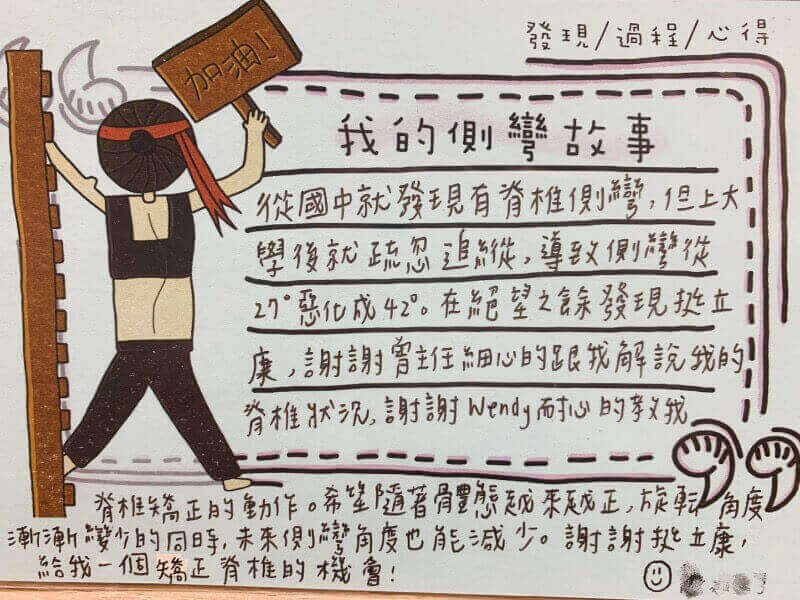 發現/過程/心得
加油!
我的側彎故事
從國中就發現有脊椎側彎,但上大
學後就疏忽追縱,導致側彎從
27°惡化成42°。在絕望之餘發現挺立
康,謝謝曾主任細心的跟我解說我的
脊椎狀況,謝謝Wendy耐心的教我
脊椎矯正的動作。希望隨著體態越來越正,旋轉角度
漸漸變少的同時,未來側彎角度也能減少。謝謝挺立康,
給我一個矯正脊椎的機會!